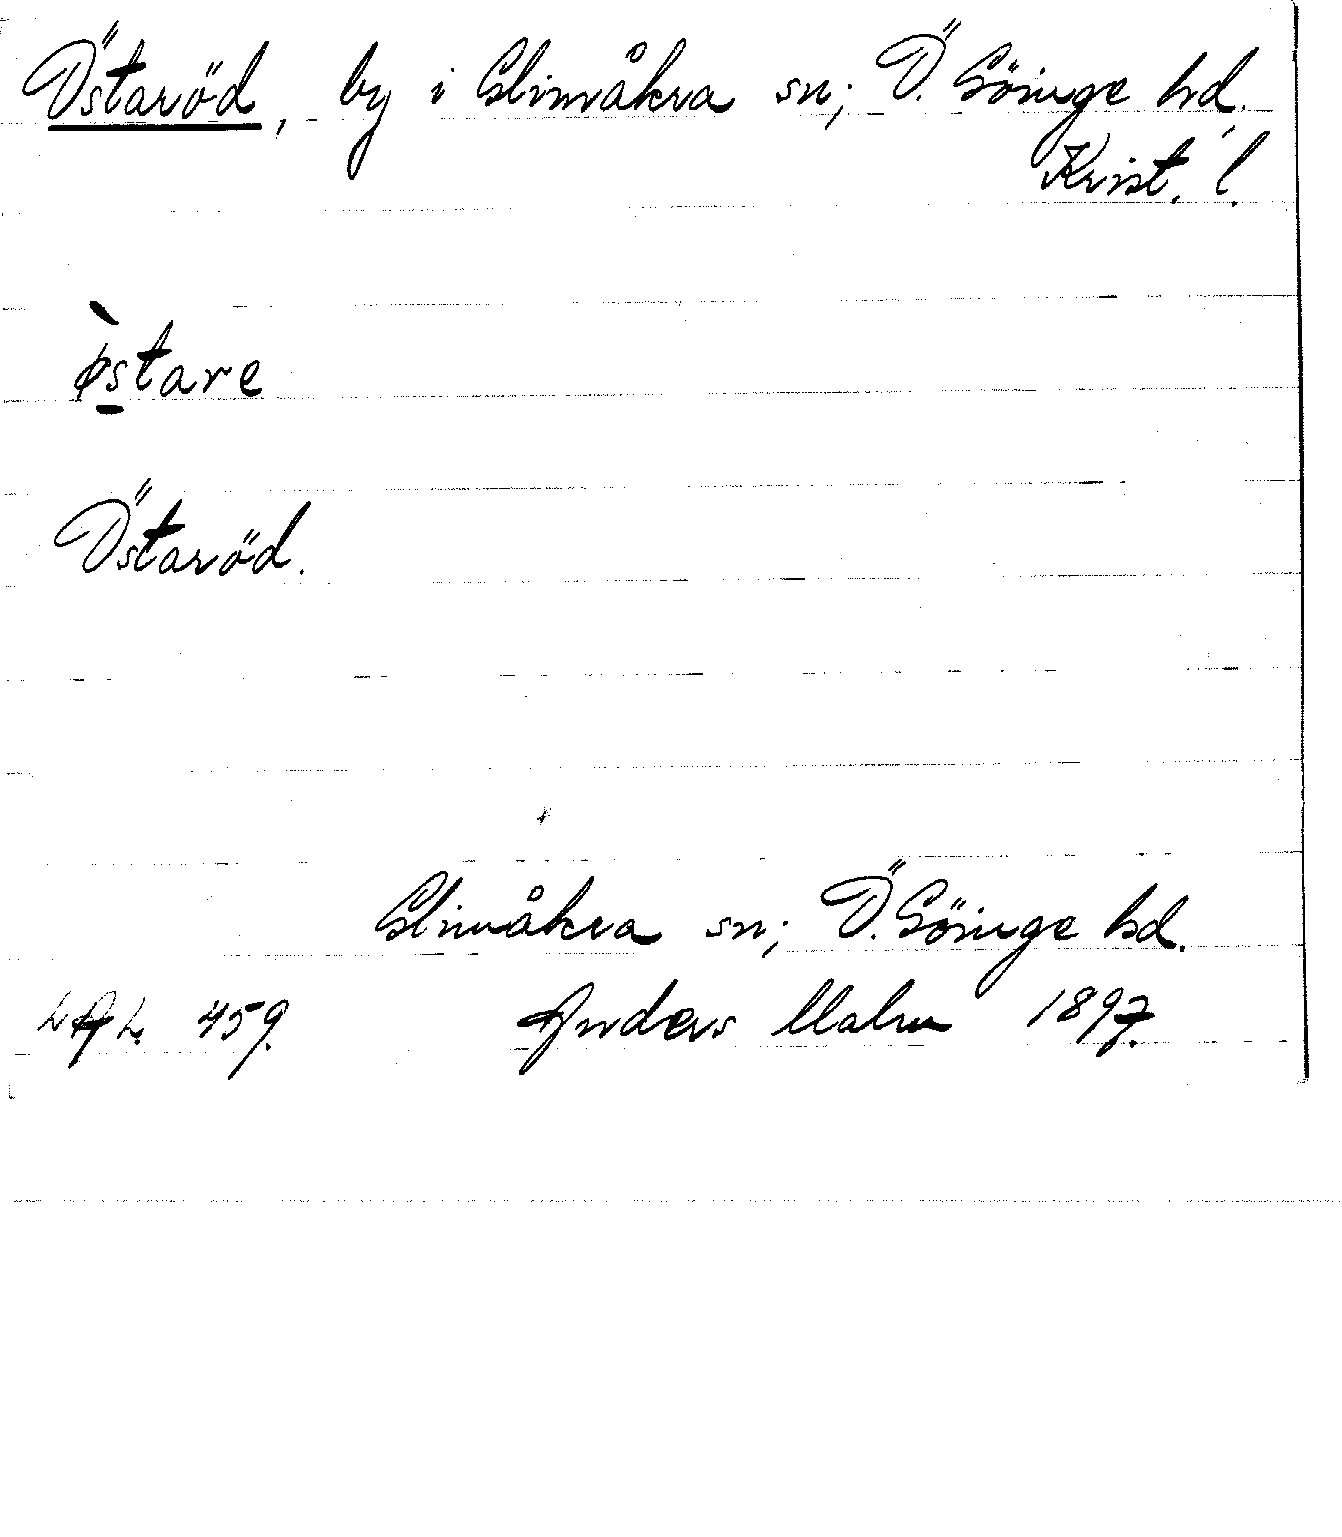 Östaröd, by i Glimåkra sn; Ö. Göinge hd.
Krist. l.
ø̀s̱tare
Östaröd.
Glimåkra sn; Ö. Göinge hd.
LAL 459. Anders Malm 1897.